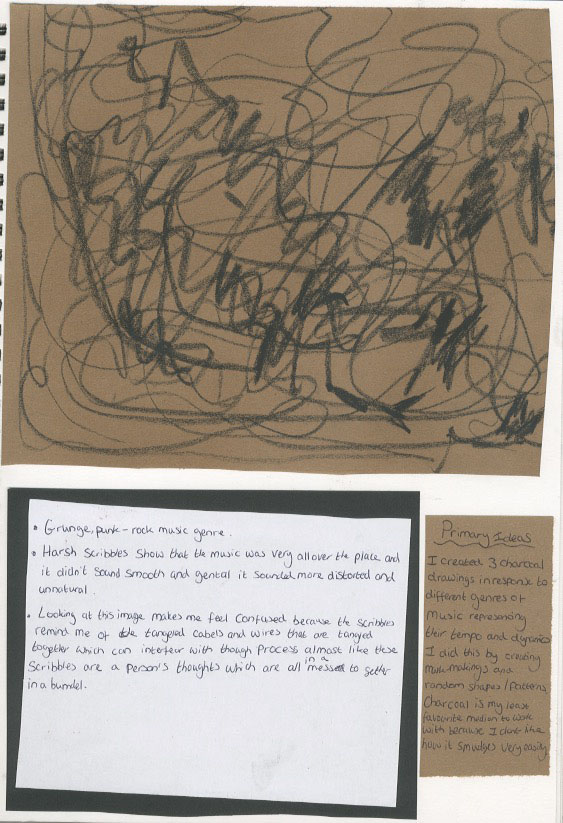 • Grunge, punk-rock music genre.
• Harsh scribbles show that the music was very all over the place and
it didn't sound smooth and gental it sounded more distorted and
unnatural.
• Looking at this image makes me feel confused because the scribbles
remind me of the tangered cabels and wires that are tangyed
together which can interfear with though process almost like these
scribbles are a person's thoughts which are all in a messed to getter
in a bundel.
Primary Ideas
I created 3 charcoal
drawings in response to
different genres of
music represening
their tempo and dynamics
I did this by creating
mark makings and
random shapes/patterns
Charcoal is my least
favourite medium to work
with because I dont like
how it smudges very easily